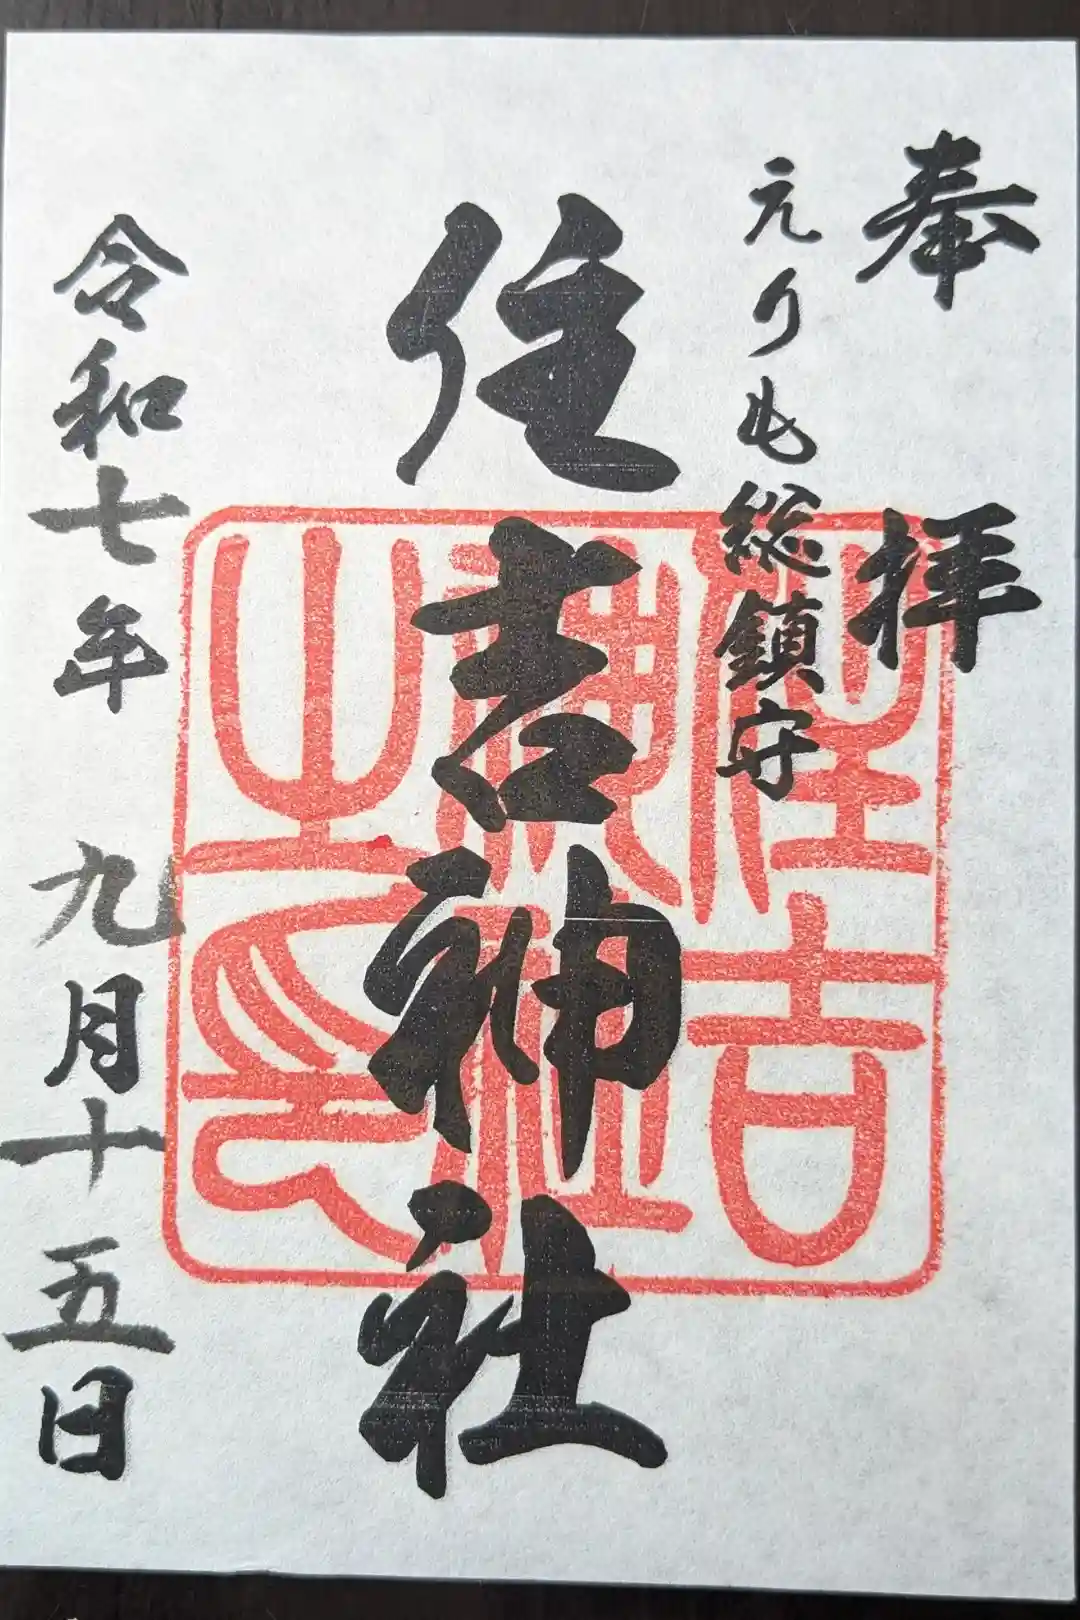 奉拝
えりも総鎮守
住吉神社
令和七年九月十五日
住吉
神社
之印